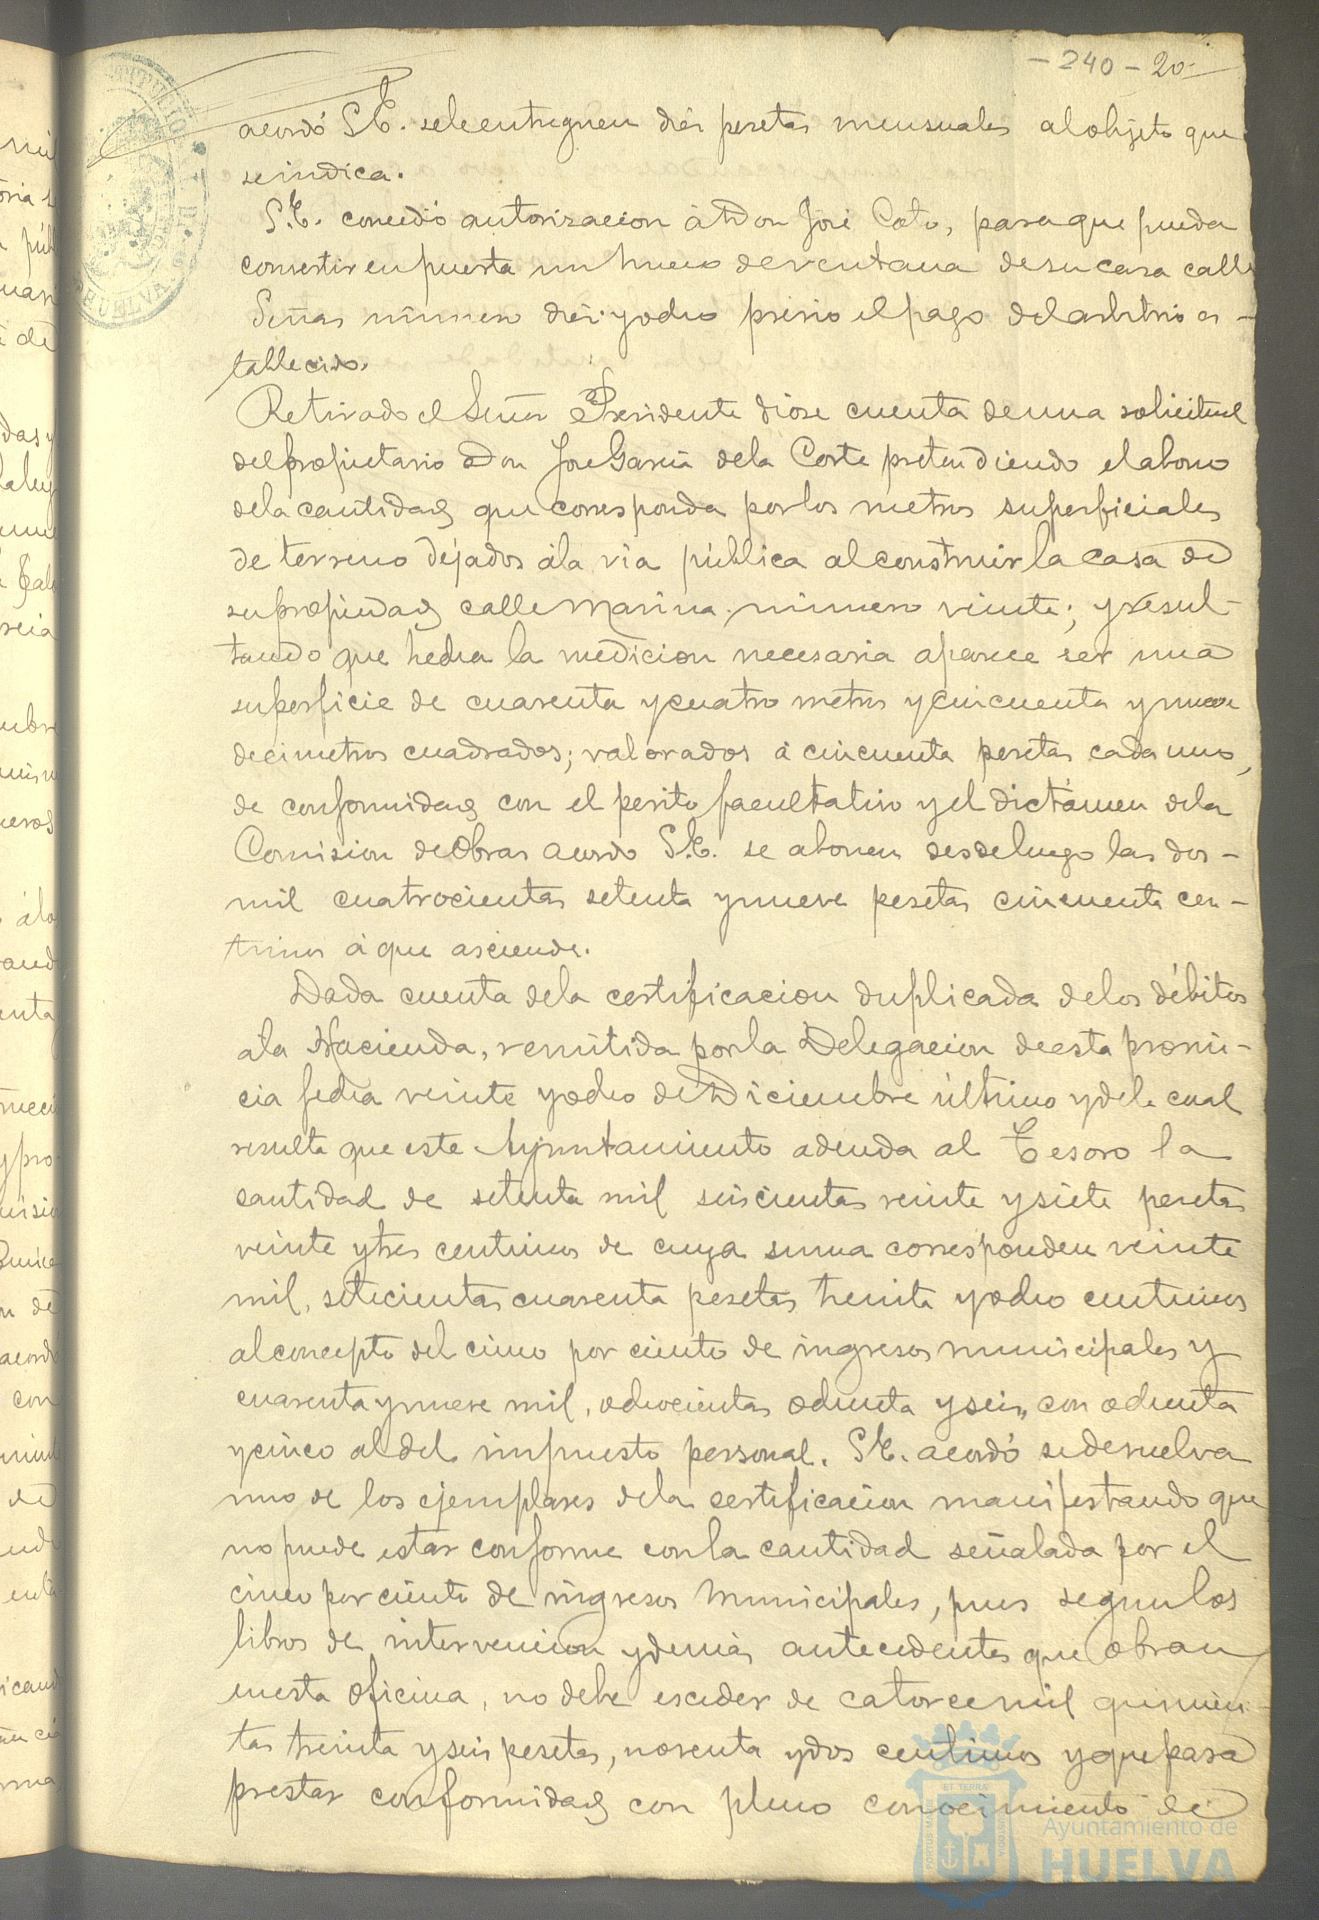 - 240 - 20
acordó S.E. se le entreguen diés pesetas mensuales al objeto que
se indica.
S.E. concedió autorizacion á Don José Coto, para que pueda
convertir en puerta un hueco de ventana de su casa calle
Señas número diés y ocho prévio el pago del arbitrio es-
tablecido.
Retirado el Señor Presidente dióse cuenta de una solicitud
del propietario Don Jose Garcia de la Corte pretendiendo el abono
de la cantidad que corresponda por los metros superficiales
de terreno dejados á la via pública al construir la casa de
su propiedad calle Marina número veinte; y resul-
tando que hecha la medicion necesaria aparece ser una
superficie de cuarenta y cuatro metros y cincuenta y nueve
decimetros cuadrados; valorados á cincuenta pesetas cada uno,
de conformidad con el perito facultativo y el dictámen de la
Comision de Obras acordo S.E. se abonen desde luego las dos-
mil cuatrocientas setenta y nueve pesetas cincuenta cen-
timos á que asciende.
Dada cuenta de la certificacion duplicada de los débitos
a la Hacienda, remitida por la Delegacion de esta provin-
cia fecha veinte y ocho de Diciembre último y de la cual
resulta que este Ayuntamiento adeuda al Tesoro la
cantidad de setenta mil seiscientas veinte y siete pesetas
veinte y tres centimos de cuya suma corresponden veinte
mil, setecientas cuarenta pesetas treinta y ocho centimos
al concepto del cinco por ciento de ingresos municipales y
cuarenta y nueve mil, ochocientas ochenta y seis, con ochenta
y cinco al del impuesto personal. S.E. acordó se devuelva
uno de los ejemplares de la certificacion manifestando que
no puede estar conforme con la cantidad señalada por el
cinco por ciento de ingresos municipales, pues segun los
libros de intervencion y demás antecedentes que obran
en esta oficina, no debe esceder de catorce mil quinien-
tas treinta y seis pesetas, noventa y dos centimos y que para
prestar conformidad con pleno conocimiento de
HUELVA
ET TERRA
Ayuntamiento de
HUELVA